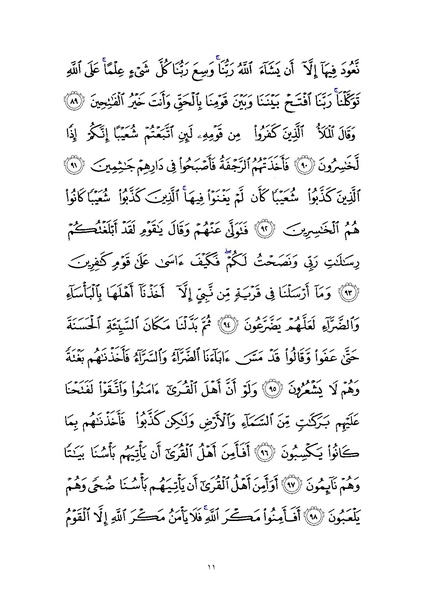 نَّعُودَ فِيهَآ إِلَّآ أَن يَشَآءَ ٱللَّهُ رَبُّنَاۚ وَسِعَ رَبُّنَا كُلَّ شَىْءٍ عِلْمًاۚ عَلَى ٱللَّهِ
تَوَكَّلْنَاۚ رَبَّنَا ٱفْتَحْ بَيْنَنَا وَبَيْنَ قَوْمِنَا بِٱلْحَقِّ وَأَنتَ خَيْرُ ٱلْفَٰتِحِينَ ٨٩
وَقَالَ ٱلْمَلَأُ ٱلَّذِينَ كَفَرُوا۟ مِن قَوْمِهِۦ لَئِنِ ٱتَّبَعْتُمْ شُعَيْبًا إِنَّكُمْ إِذًا
لَّخَٰسِرُونَ ٩٠ فَأَخَذَتْهُمُ ٱلرَّجْفَةُ فَأَصْبَحُوا۟ فِى دَارِهِمْ جَٰثِمِينَ ٩١
ٱلَّذِينَ كَذَّبُوا۟ شُعَيْبًا كَأَن لَّمْ يَغْنَوْا۟ فِيهَاۚ ٱلَّذِينَ كَذَّبُوا۟ شُعَيْبًا كَانُوا۟
هُمُ ٱلْخَٰسِرِينَ ٩٢ فَتَوَلَّىٰ عَنْهُمْ وَقَالَ يَٰقَوْمِ لَقَدْ أَبْلَغْتُكُمْ
رِسَٰلَٰتِ رَبِّى وَنَصَحْتُ لَكُمْۖ فَكَيْفَ ءَاسَىٰ عَلَىٰ قَوْمٍ كَٰفِرِينَ
٩٣ وَمَآ أَرْسَلْنَا فِى قَرْيَةٍ مِّن نَّبِىٍّ إِلَّآ أَخَذْنَآ أَهْلَهَا بِٱلْبَأْسَآءِ
وَٱلضَّرَّآءِ لَعَلَّهُمْ يَضَّرَّعُونَ ٩٤ ثُمَّ بَدَّلْنَا مَكَانَ ٱلسَّيِّئَةِ ٱلْحَسَنَةَ
حَتَّىٰ عَفَوا۟ وَّقَالُوا۟ قَدْ مَسَّ ءَابَآءَنَا ٱلضَّرَّآءُ وَٱلسَّرَّآءُ فَأَخَذْنَٰهُم بَغْتَةً
وَهُمْ لَا يَشْعُرُونَ ٩٥ وَلَوْ أَنَّ أَهْلَ ٱلْقُرَىٰٓ ءَامَنُوا۟ وَٱتَّقَوْا۟ لَفَتَحْنَا
عَلَيْهِم بَرَكَٰتٍ مِّنَ ٱلسَّمَآءِ وَٱلْأَرْضِ وَلَٰكِن كَذَّبُوا۟ فَأَخَذْنَٰهُم بِمَا
كَانُوا۟ يَكْسِبُونَ ٩٦ أَفَأَمِنَ أَهْلُ ٱلْقُرَىٰٓ أَن يَأْتِيَهُم بَأْسُنَا بَيَٰتًا
وَهُمْ نَآئِمُونَ ٩٧ أَوَأَمِنَ أَهْلُ ٱلْقُرَىٰٓ أَن يَأْتِيَهُم بَأْسُنَا ضُحًى وَهُمْ
يَلْعَبُونَ ٩٨ أَفَأَمِنُوا۟ مَكْرَ ٱللَّهِۚ فَلَا يَأْمَنُ مَكْرَ ٱللَّهِ إِلَّا ٱلْقَوْمُ
١١